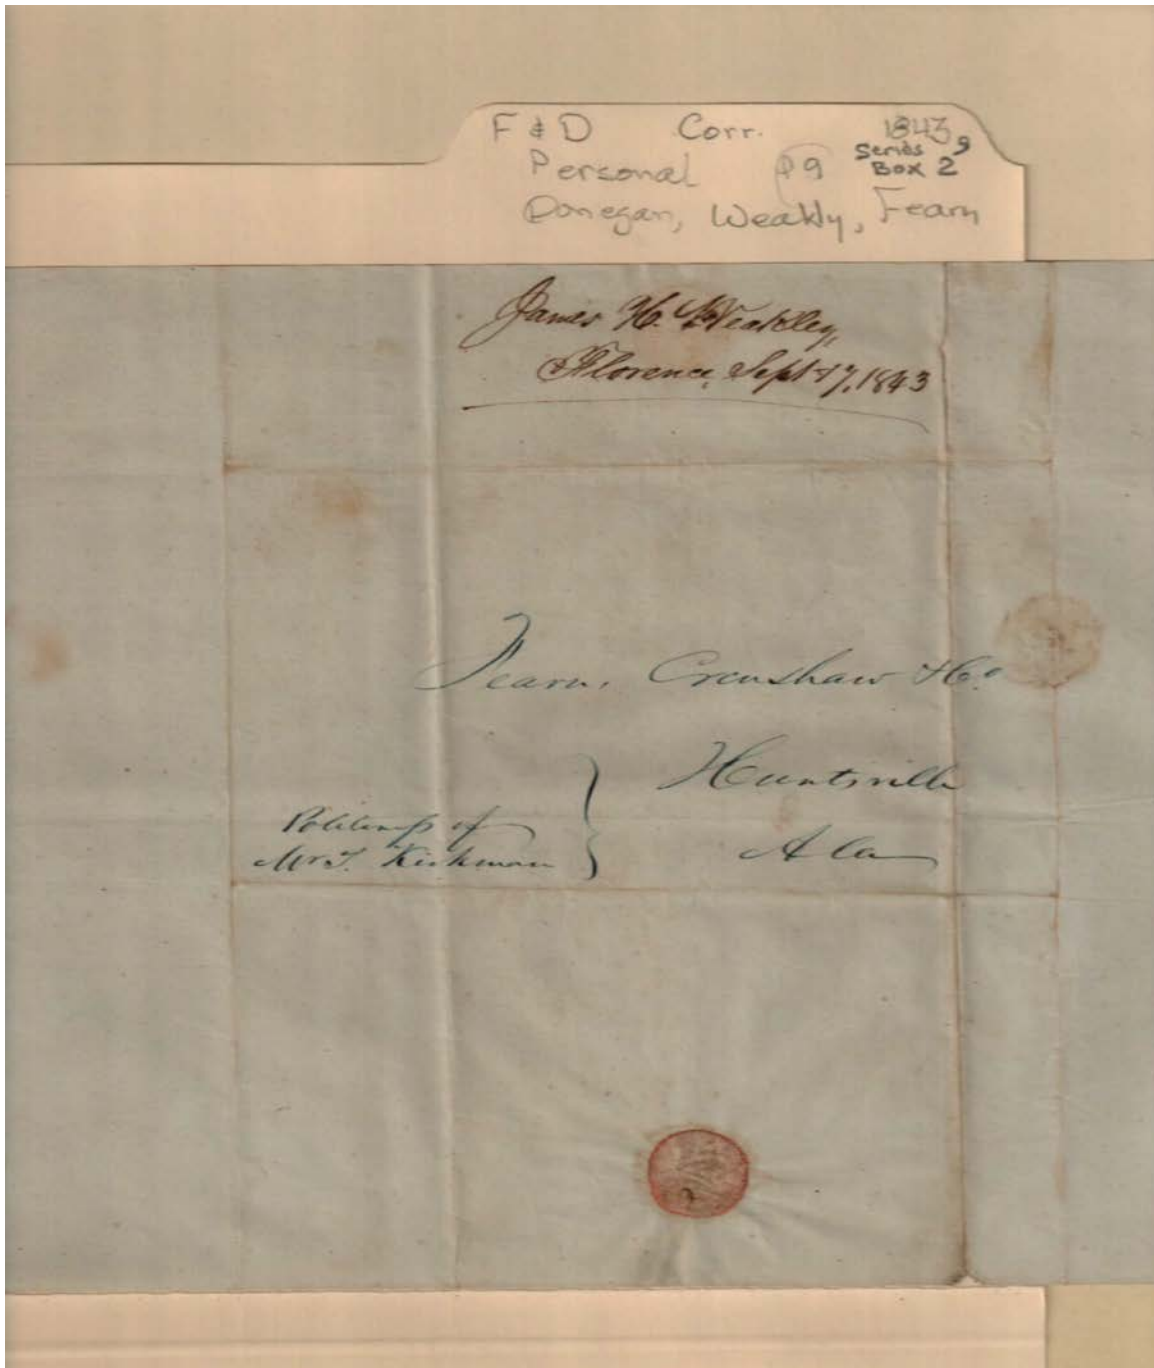 F & D Corr. 1843
Series 9
Personal P9 Box 2
Donegan, Weakly, Fearn
James H. Weakley,
Florence, Sept 17, 1843
Fearn, Crenshaw & Co.
Huntsville
Politeness of
Mr T. Kirkman
Ala